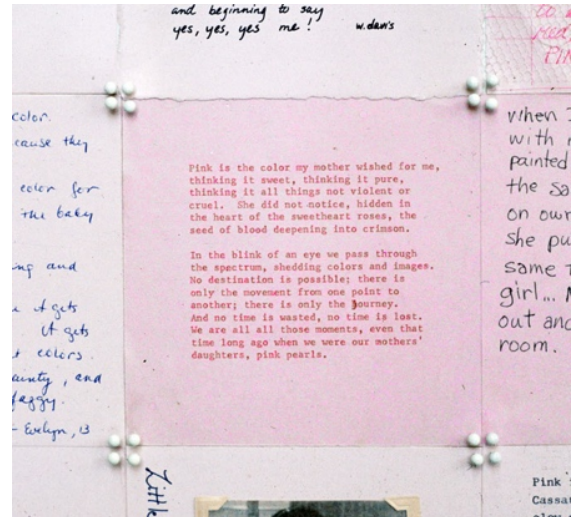 and beginning to say
yes, yes, yes me!
w. davis
color.
cause they
color for
the baby
ing and
it gets
it gets
colors.
ainty, and
faggy.
- Evelyn, 13
Pink is the color my mother wished for me,
thinking it sweet, thinking it pure,
thinking it all things not violent or
cruel. She did not notice, hidden in
the heart of the sweetheart roses, the
seed of blood deepening into crimson.
In the blink of an eye we pass through
the spectrum, shedding colors and images.
No destination is possible; there is
only the movement from one point to
another; there is only the journey.
And no time is wasted, no time is lost.
We are all all those moments, even that
time long ago when we were our mothers'
daughters, pink pearls.
when I
with
painted
the sa
on our
she pu
same
girl...
out and
room.
Little
Pink
Cassa